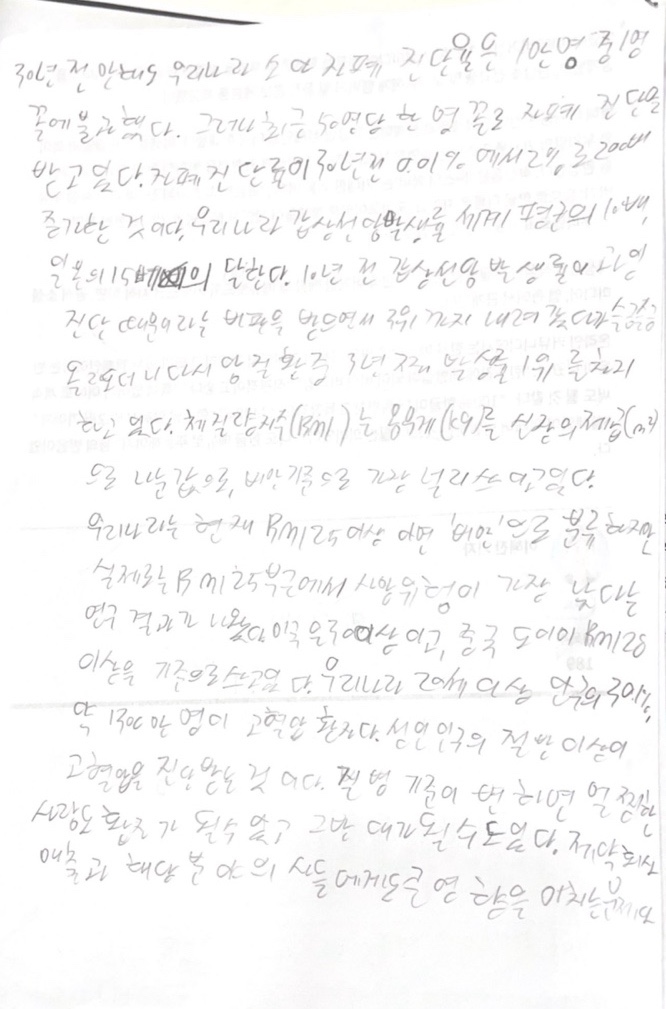 30년 전 만해도 우리나라 소아 자폐 진단율은 1만명 중 1명
꼴에 불과했다. 그러나 최근 50명당 한 명 꼴로 자폐 진단을
받고 있다. 자폐 진단률이 30년 전 0.01%에서 2%로 200배
증가한 것이다. 우리나라 갑상선암 발생률 세계 평균의 10배,
일본의 15배의 달한다. 10년 전 갑상선암 발생률이 과잉
진단 때문이라는 비판을 받으면서 3위까지 내려갔다가 슬금슬금
올르더니 다시 암 질환 중 3년째 발생률 1위를 차지
하고 있다. 체질량지수(BMI)는 몸무게(kg)를 신장의 제곱(m²)
으로 나눈 값으로, 비만 기준으로 가장 널리 쓰이고 있다.
우리나라는 현재 BMI 25 이상 이면 '비만'으로 분류하지만
실제로는 BMI 25 부근에서 사망 위험이 가장 낮다는
연구 결과가 나왔다. 미국은 30이상이고, 중국도 이미 BMI 28
이상을 기준으로 쓰고 있다. 우리나라 20세 이상 인구의 30%,
약 1300만 명이 고혈압 환자다. 성인 인구의 절반 이상이
고혈압을 진단받는 것이다. 질병 기준이 변하면 멀쩡한
사람도 환자가 될 수 있고 그 반대가 될 수도 있다. 제약회사
매출과 해당 분야의 의사들에게도 큰 영향을 미치는 문제다